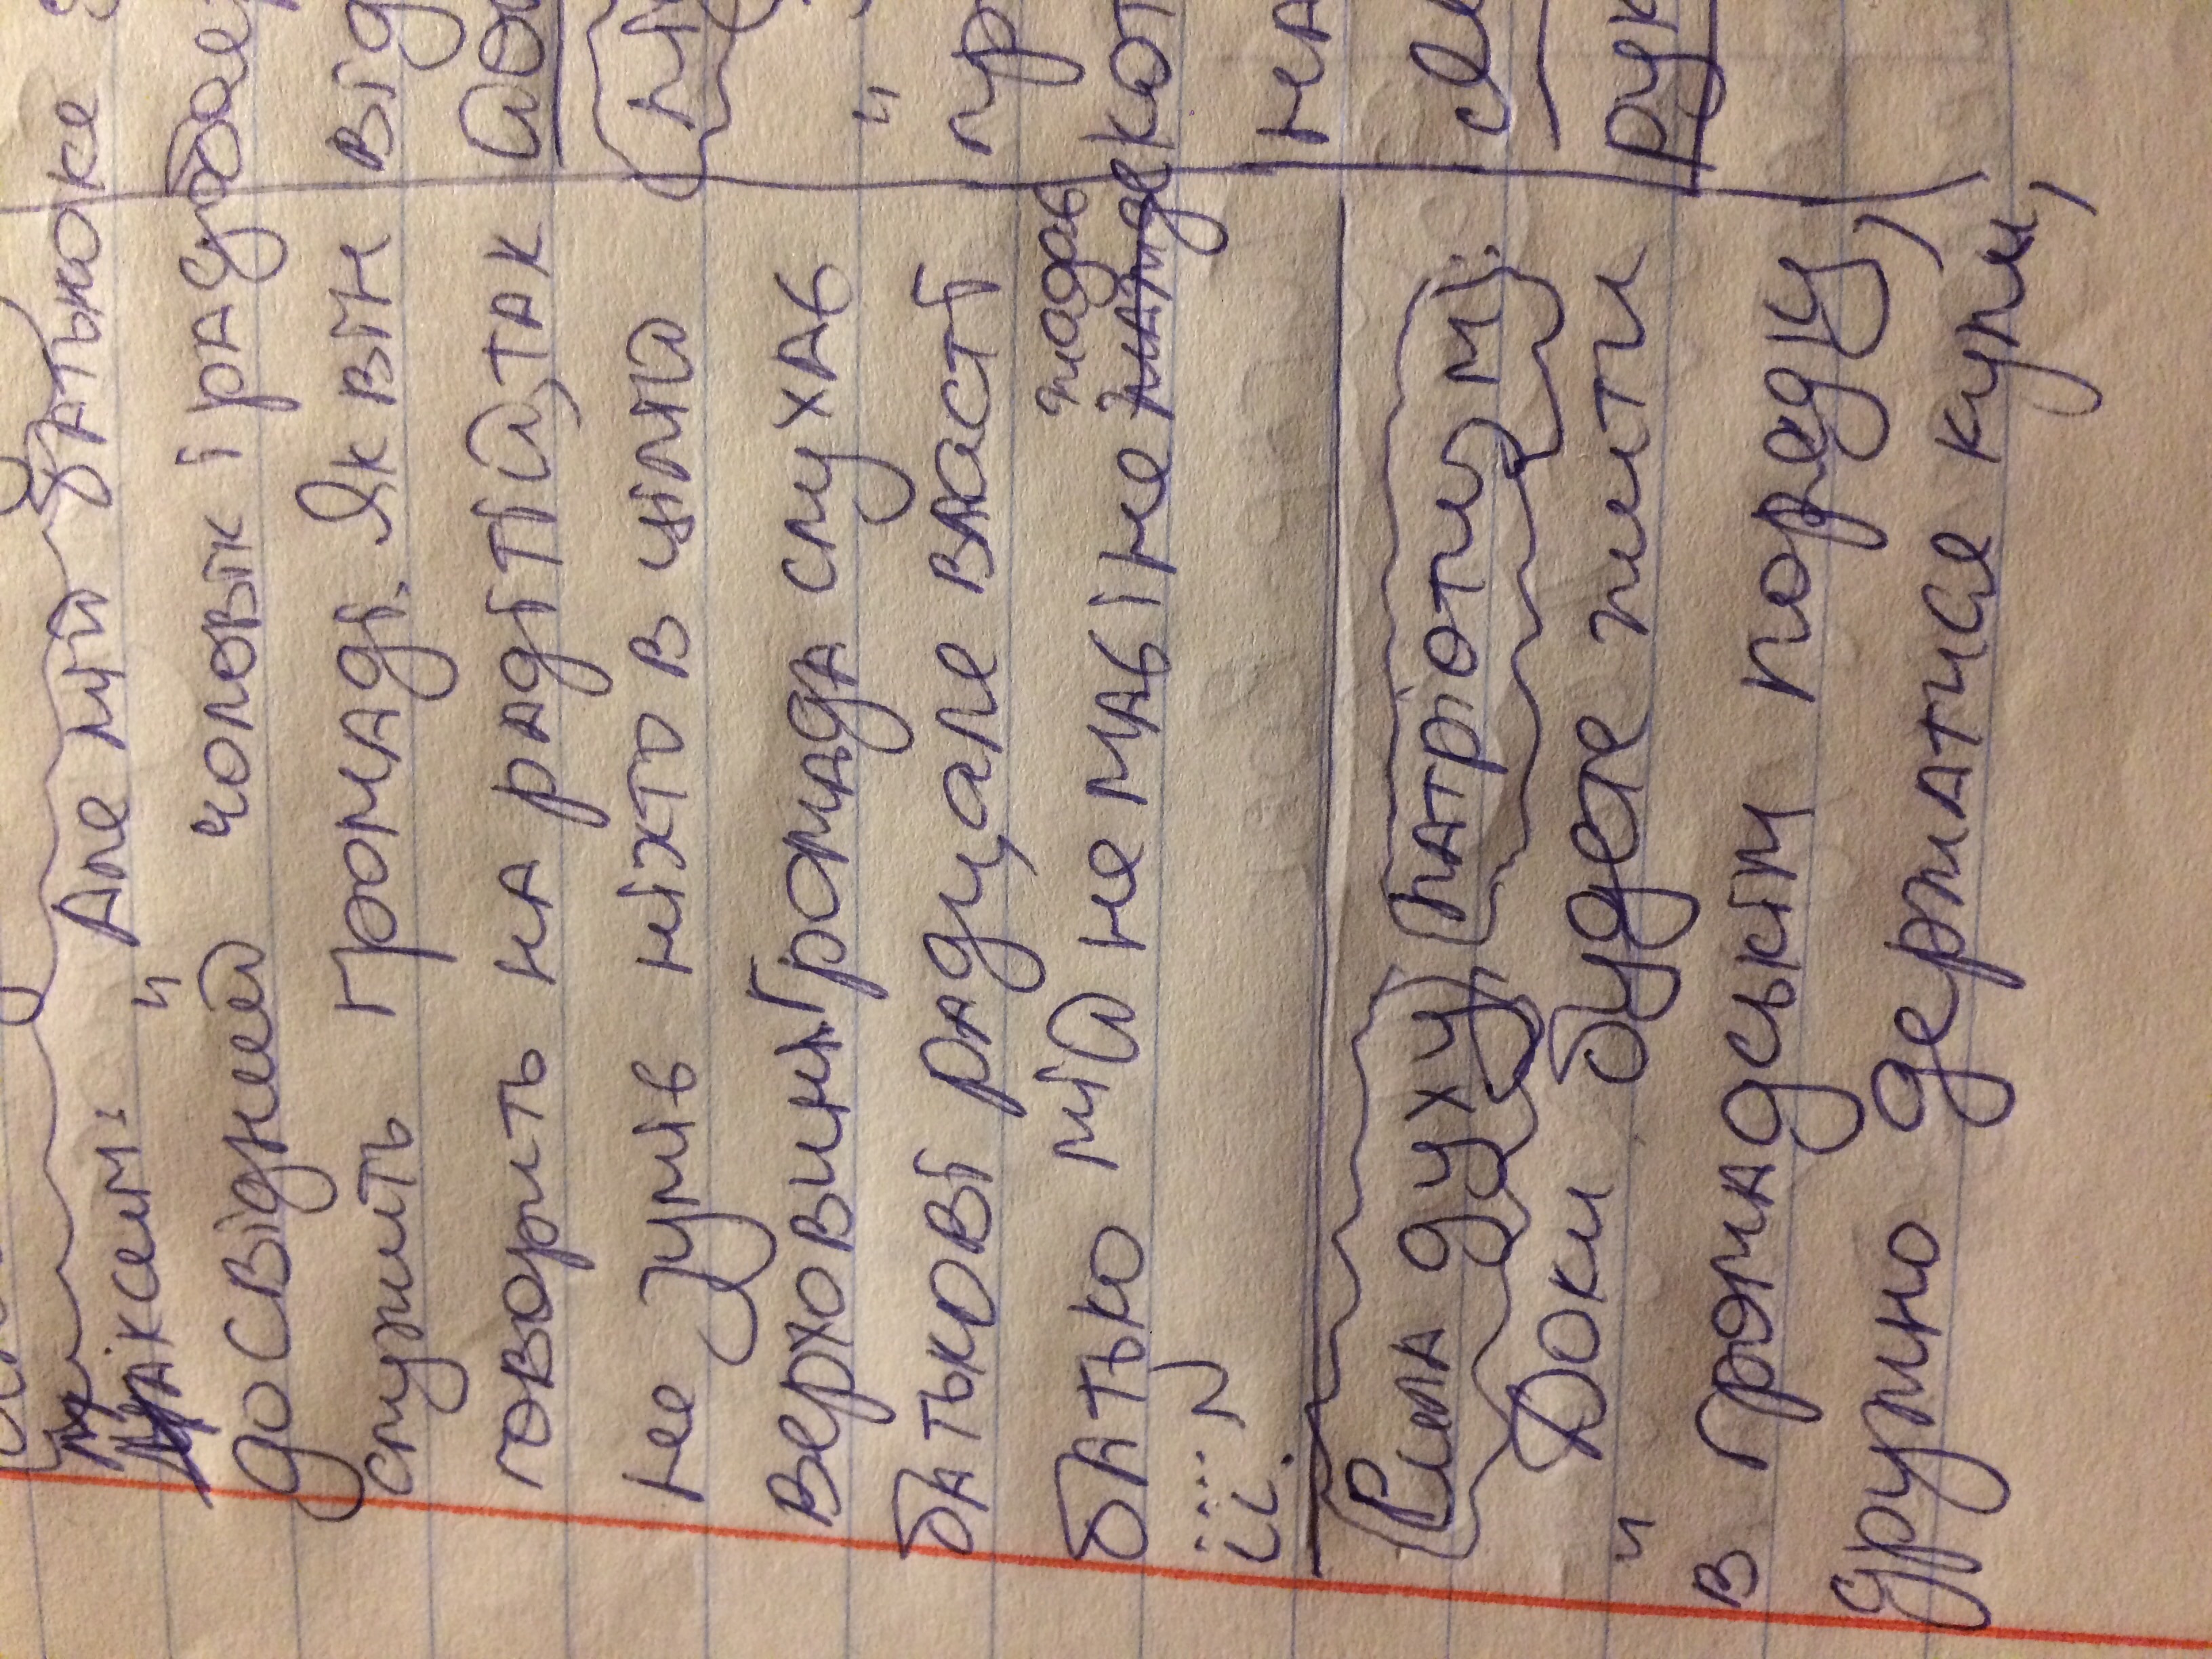 Максим:
" Але мій батько же
досвідний чоловік і рад у
служить громаді. Як він
говорить на раді тій, так
не зумів ніхто в цілій
верховині. Громада слуха
батькові раду, але власті
батько мій не мав і не жадав
її..."
Сила духу, патріотизм:
" Доки буде жити
в громадськім порєдку,
дружно держатися купи,
від
"
пр
кот
на
рук